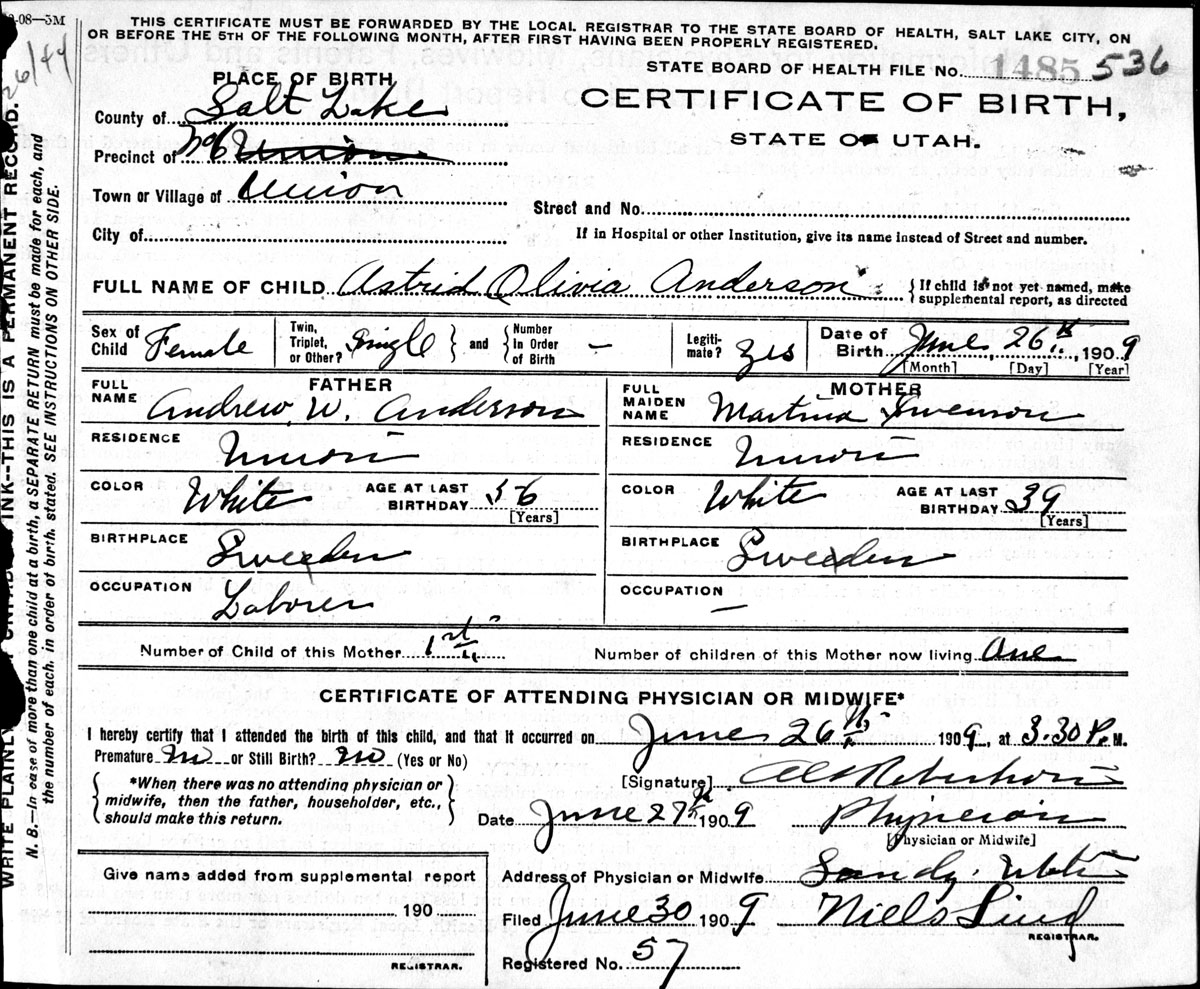 2-08—5M
THIS CERTIFICATE MUST BE FORWARDED BY THE LOCAL REGISTRAR TO THE STATE BOARD OF HEALTH, SALT LAKE CITY, ON
OR BEFORE THE 5TH OF THE FOLLOWING MONTH, AFTER FIRST HAVING BEEN PROPERLY REGISTERED.
STATE BOARD OF HEALTH FILE No. 1485 536
CERTIFICATE OF BIRTH,
STATE OF UTAH.
PLACE OF BIRTH
County of Salt Lake
Precinct of Union
Town or Village of Union
Street and No.
City of
If in Hospital or other Institution, give its name instead of Street and number.
FULL NAME OF CHILD Astrid Olivia Anderson { If child is not yet named, make supplemental report, as directed
Sex of Child Female
Twin, Triplet, or Other? Single } and { Number In Order of Birth –
Legiti- mate? Yes
Date of Birth June 26th, 1909
[Month] [Day] [Year]
FATHER
FULL NAME Andrew W. Anderson
RESIDENCE Union
COLOR White AGE AT LAST BIRTHDAY 36 [Years]
BIRTHPLACE Sweeden
OCCUPATION Laborer
MOTHER
FULL MAIDEN NAME Martina Swenson
RESIDENCE Union
COLOR White AGE AT LAST BIRTHDAY 39 [Years]
BIRTHPLACE Sweeden
OCCUPATION –
Number of Child of this Mother 1st
Number of children of this Mother now living One
CERTIFICATE OF ATTENDING PHYSICIAN OR MIDWIFE*
I hereby certify that I attended the birth of this child, and that it occurred on June 26th 1909, at 3.30 P. M.
Premature no or Still Birth? no (Yes or No)
{ *When there was no attending physician or midwife, then the father, householder, etc., should make this return. }
[Signature] Robertson
Date June 27th 1909 Physician
[Physician or Midwife]
Address of Physician or Midwife Sandy, Utah
Filed June 30 1909 Niels Lind
REGISTRAR.
Registered No. 57
Give name added from supplemental report
190
REGISTRAR.
WRITE PLAINLY INK--THIS IS A PERMANENT RECORD.
N. B.—In case of more than one child at a birth, a SEPARATE RETURN must be made for each, and
the number of each, in order of birth, stated. SEE INSTRUCTIONS ON OTHER SIDE.